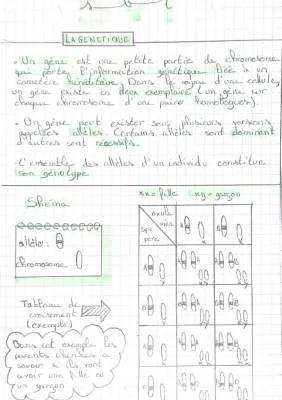 LA GENETIQUE
• Un gène est une petite partie de chromosome
qui porte l'information génétique liée à un
caractère héréditaire. Dans le noyau d'une cellule,
un gène existe en deux exemplaires (un gène sur
chaque chromosome d'une paire homologues).
• Un gène peut exister sous plusieurs versions
appelées allèles. Certains allèles sont dominant
d'autres sont récessifs.
• L'ensemble des allèles d'un individu constitue
son génotype
xx = fille xy = garçon
Shéma
allèle:
chromosome
ovule
père
Tableau de
croisement
(exemple)
Dans cet exemple les
parents cherchent à
savoir si ils vont
avoir une fille ou
un garçon